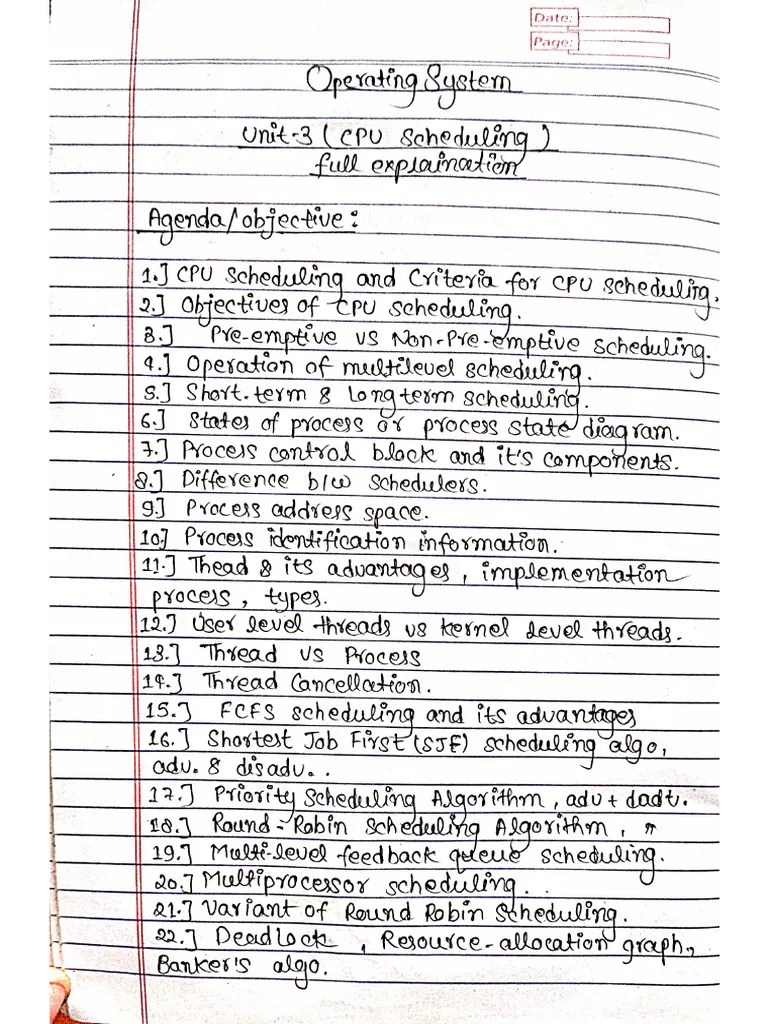 Date:
Page:
Operating System
Unit-3 (CPU Scheduling)
full explaination
Agenda/objective:
1.] CPU Scheduling and Criteria for CPU scheduling.
2.] Objectives of CPU scheduling.
3.] Pre-emptive vs Non-Pre-emptive scheduling.
4.] Operation of multilevel scheduling.
5.] Short-term & long term scheduling.
6.] States of process or process state diagram.
7.] Process control block and it's components.
8.] Difference b/w schedulers.
9.] Process address space.
10.] Process identification information.
11.] Thead & its advantages, implementation
process, types.
12.] User level threads vs kernel level threads.
13.] Thread vs Process
14.] Thread Cancellation.
15.] FCFS scheduling and its advantages
16.] Shortest Job First (SJF) scheduling algo,
adv. & disadv..
17.] Priority Scheduling Algorithm, adv + dadt.
18.] Round-Robin Scheduling Algorithm,
19.] Multi-level feedback queue scheduling.
20.] Multiprocessor scheduling..
21.] Variant of Round Robin Scheduling.
22.] Deadlock, Resource-allocation graph,
Banker's algo.